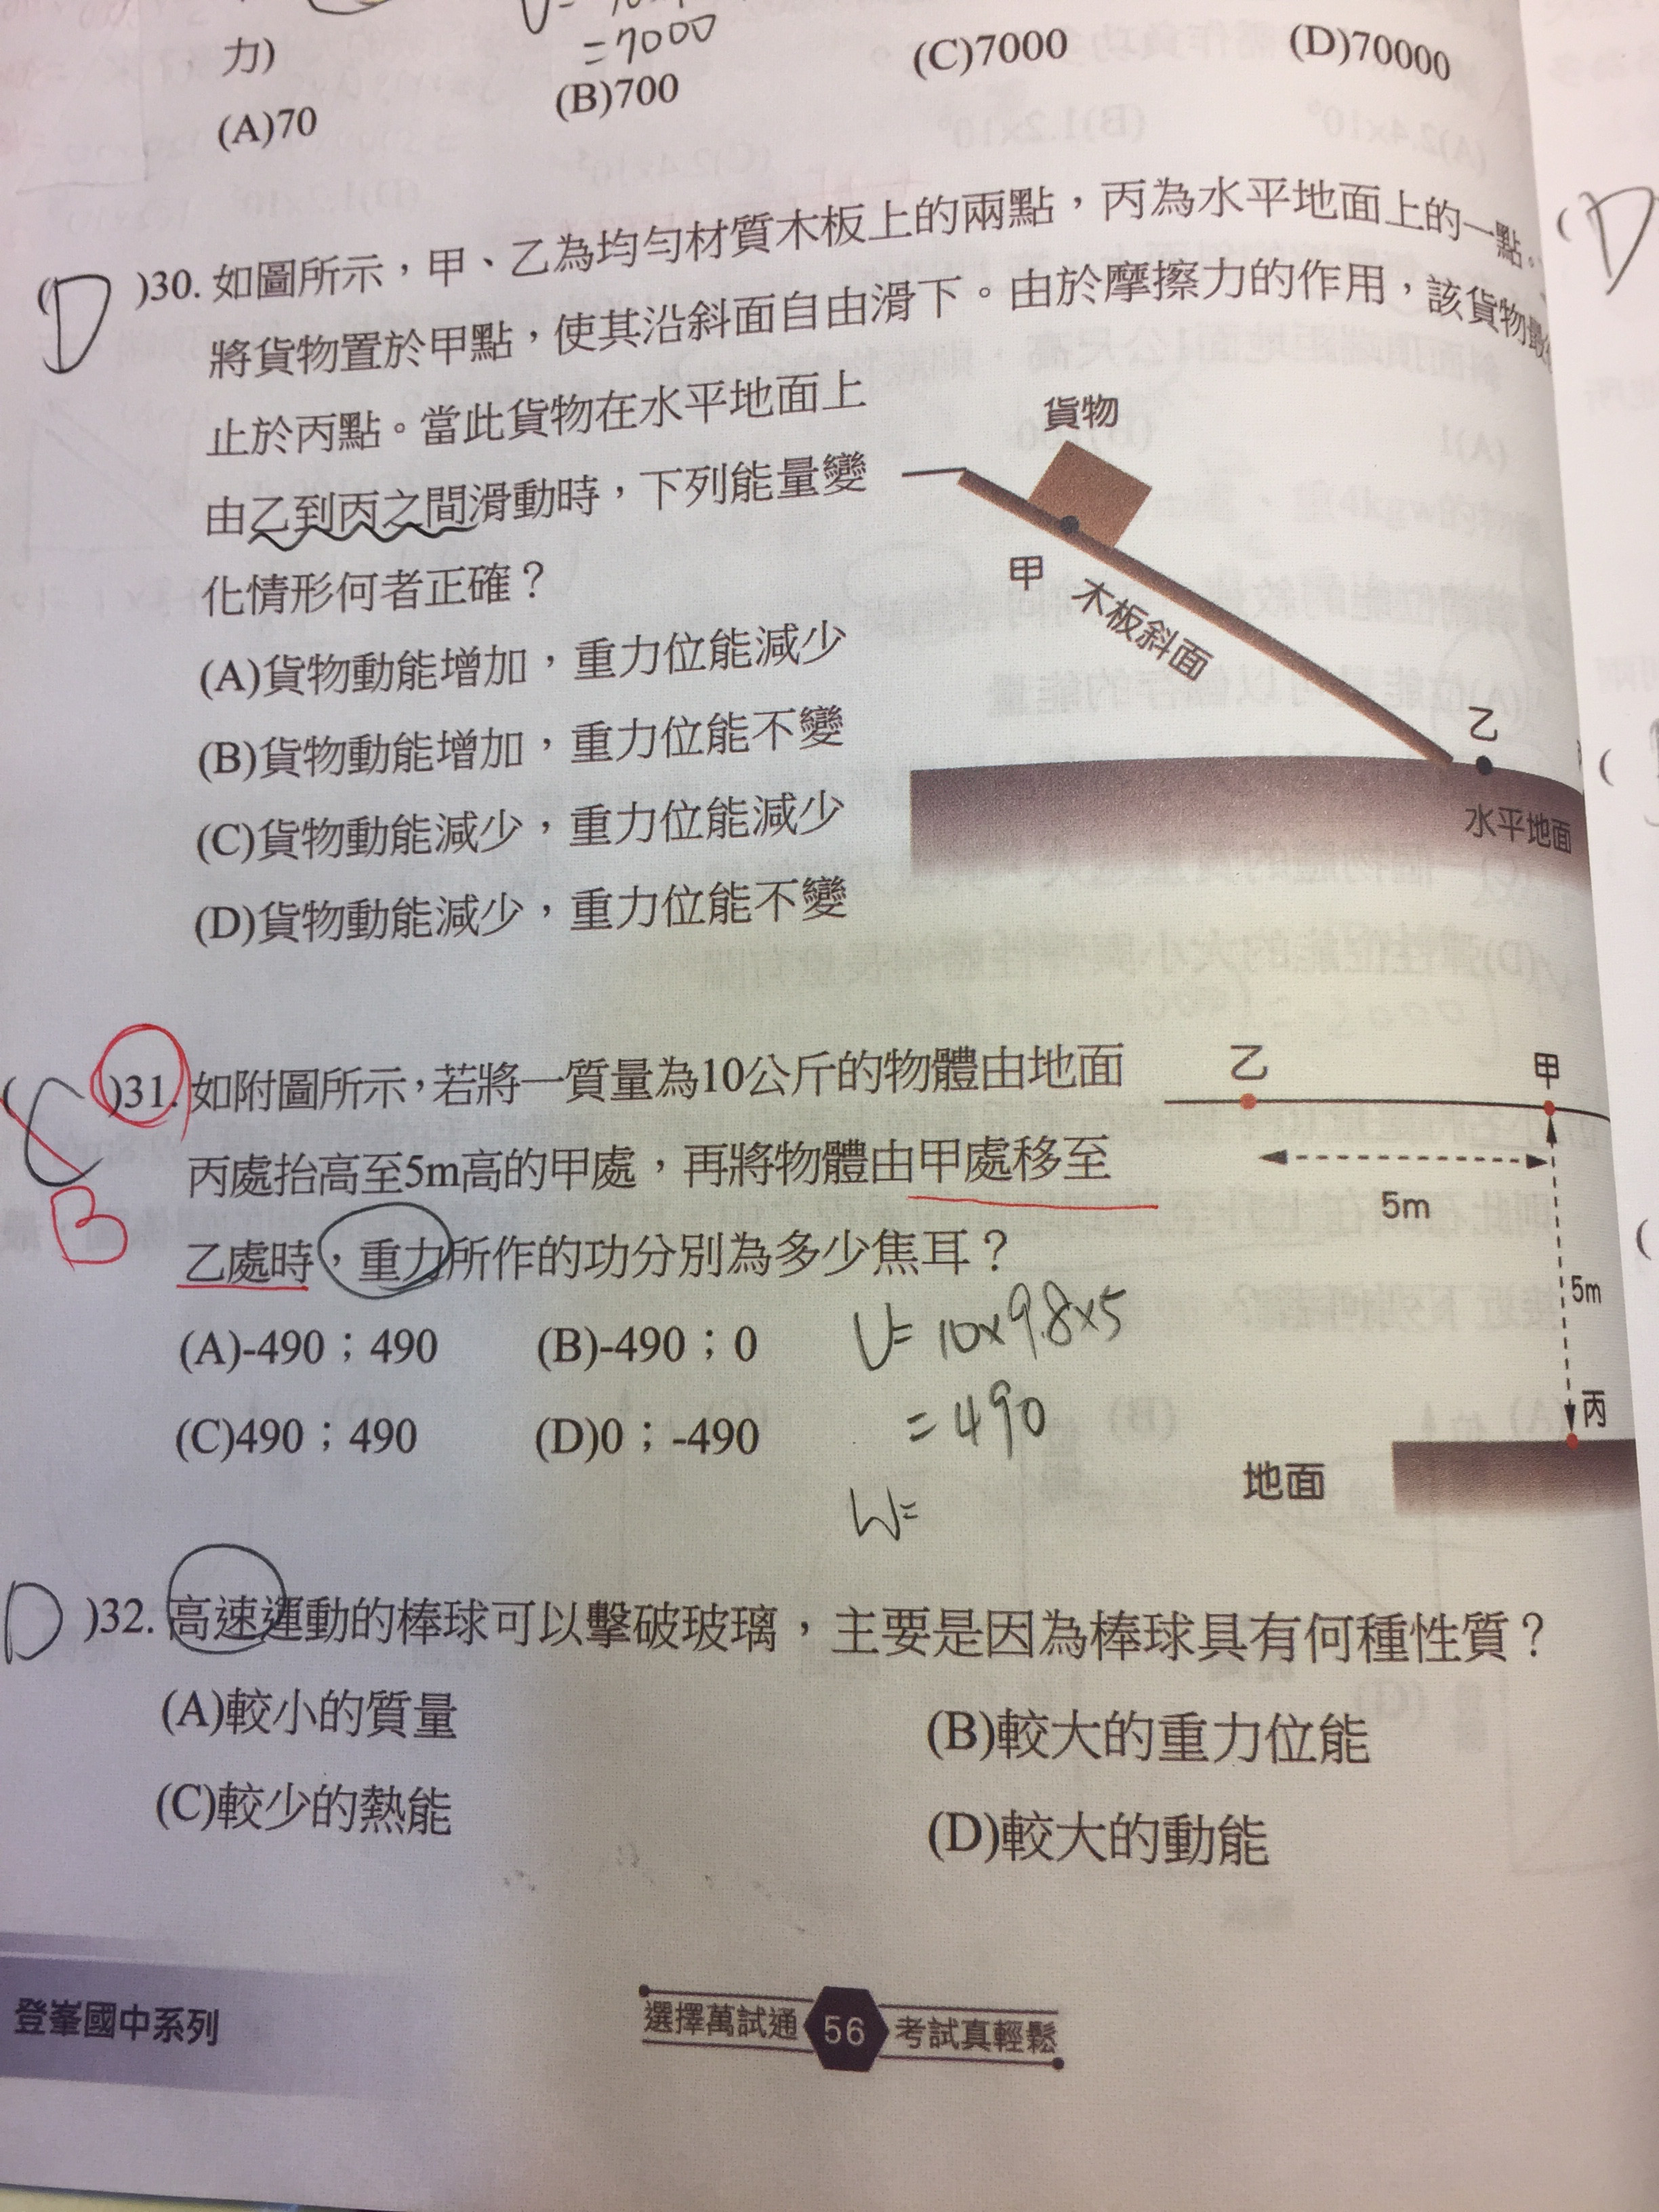 力)
=7000
(A)70
(B)700
(C)7000
(D)70000
(D )30. 如圖所示，甲、乙為均勻材質木板上的兩點，丙為水平地面上的一點。
將貨物置於甲點，使其沿斜面自由滑下。由於摩擦力的作用，該貨物
止於丙點。當此貨物在水平地面上
由乙到丙之間滑動時，下列能量變
化情形何者正確？
(A)貨物動能增加，重力位能減少
(B)貨物動能增加，重力位能不變
(C)貨物動能減少，重力位能減少
(D)貨物動能減少，重力位能不變
貨物
甲
木板斜面
乙
水平地面
(C )31. 如附圖所示，若將一質量為10公斤的物體由地面
丙處抬高至5m高的甲處，再將物體由甲處移至
B
乙處時，重力所作的功分別為多少焦耳？
(A)-490；490
(B)-490；0
(C)490；490
(D)0；-490
U=10×9.8×5
=490
W=
乙
甲
5m
5m
丙
地面
D )32. 高速運動的棒球可以擊破玻璃，主要是因為棒球具有何種性質？
(A)較小的質量
(B)較大的重力位能
(C)較少的熱能
(D)較大的動能
D
登峯國中系列
選擇萬試通 56 考試真輕鬆